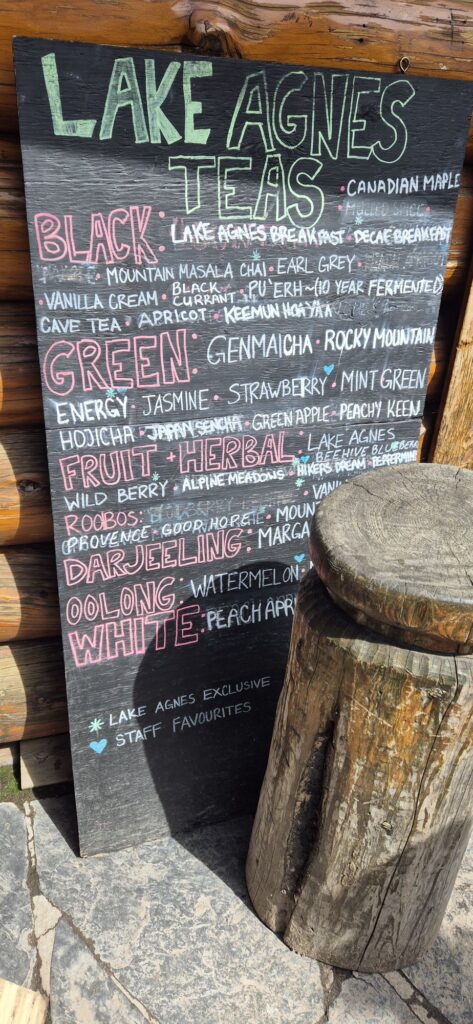 LAKE AGNES
TEAS
• CANADIAN MAPLE
• MULLED SPICE •
BLACK: LAKE AGNES BREAKFAST • DECAF BREAKFAST
• MOUNTAIN MASALA CHAI • EARL GREY •
• VANILLA CREAM • BLACK CURRANT • PU'ERH~(10 YEAR FERMENTED)
CAVE TEA • APRICOT • KEEMUN
GREEN: GENMAICHA • ROCKY MOUNTAIN
ENERGY • JASMINE • STRAWBERRY • MINT GREEN
HOJICHA • JAPAN SENCHA • GREEN APPLE • PEACHY KEEN
FRUIT + HERBAL: LAKE AGNES
BEEHIVE
WILD BERRY • ALPINE MEADOWS • HIKERS DREAM • PEPPERMINT
ROOIBOS:
PROVENCE • GOOD HOPE •
DARJEELING:
OOLONG: WATERMELON •
WHITE: PEACH
LAKE AGNES EXCLUSIVE
STAFF FAVOURITES